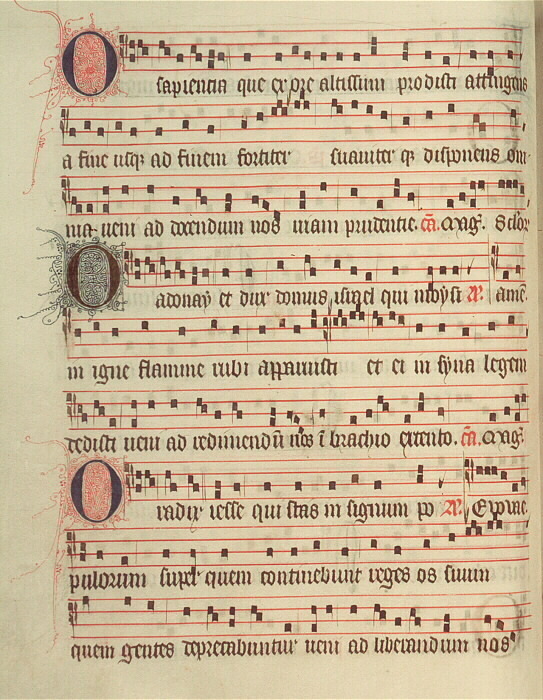 O sapientia que ex ore altissimi prodisti attingens
a fine usq; ad finem fortiter suaviter q; disponens om
nia veni ad docendum nos viam prudentie. cā. Mag̃. Sclor
O adonay et dux domus israel qui
in igne flamme rubi apparuisti et ei in syna legem
dedisti veni ad redimendū nos ī brachio extento. cā. Mag̃.
O radix iesse qui stas in signum po
pulorum super quem continebunt reges os suum
quem gentes deprecabuntur veni ad liberandum nos